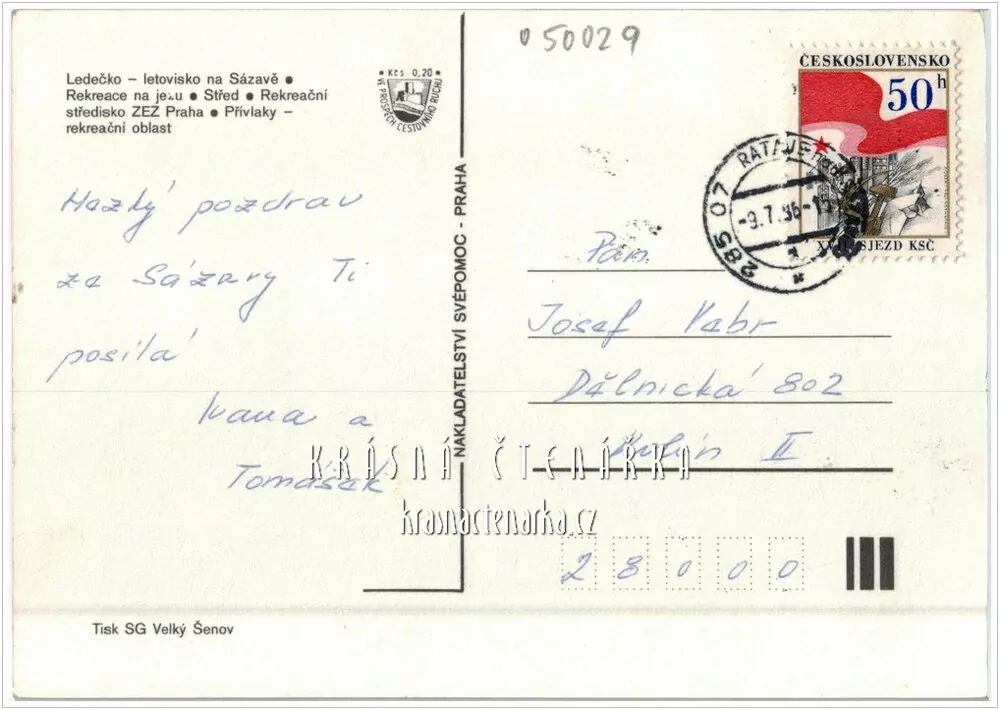 050029
Ledečko – letovisko na Sázavě •
Rekreace na jezu • Střed • Rekreační
středisko ZEZ Praha • Přívlaky –
rekreační oblast
• Kčs. 0,20 •
VE PROSPĚCH CESTOVNÍHO RUCHU
ČESKOSLOVENSKO
50 h
XVII. SJEZD KSČ
285 07 RATAJE nad
-9.7.86-15
Hezký pozdrav
ze Sázavy Ti
posílá
Ivana a
Tomášek
NAKLADATELSTVÍ SVÉPOMOC - PRAHA
Pan
Josef Vabr
Dělnická 802
Kolín II
28000
KRÁSNÁ ČTENÁŘKA
krasnactenarka.cz
Tisk SG Velký Šenov